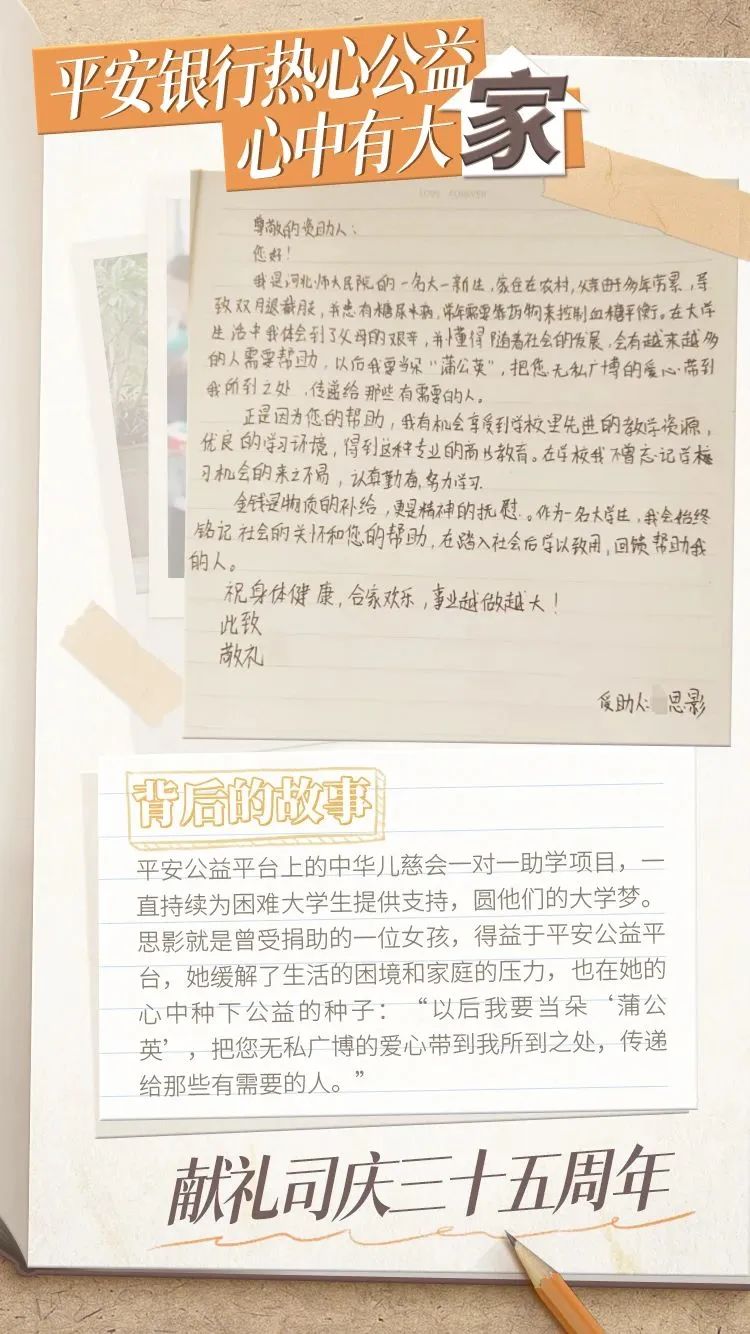 平安银行热心公益
心中有大家
LOVE FOREVER
尊敬的资助人：
您好！
我是河北师大民院的一名大一新生，家住在农村，父亲由于多年劳累，导
致双月退截肢，我患有糖尿病，常年需要靠药物来控制血糖平衡。在大学
生活中我体会到了父母的艰辛，并懂得随着社会的发展，会有越来越多
的人需要帮助，以后我要当朵“蒲公英”，把您无私广博的爱心带到
我所到之处，传递给那些有需要的人。
正是因为您的帮助，我有机会享受到学校里先进的教学资源，
优良的学习环境，得到这种专业的高等教育。在学校我不曾忘记学
习机会的来之不易，认真勤奋，努力学习.
金钱是物质的补给，更是精神的抚慰.。作为一名大学生，我会始终
铭记社会的关怀和您的帮助，在踏入社会后学以致用，回馈帮助我
的人。
祝身体健康，合家欢乐，事业越做越大！
此致
敬礼
受助人:思影
背后的故事
平安公益平台上的中华儿慈会一对一助学项目，一
直持续为困难大学生提供支持，圆他们的大学梦。
思影就是曾受捐助的一位女孩，得益于平安公益平
台，她缓解了生活的困境和家庭的压力，也在她的
心中种下公益的种子：“以后我要当朵‘蒲公
英’，把您无私广博的爱心带到我所到之处，传递
给那些有需要的人。”
献礼司庆三十五周年